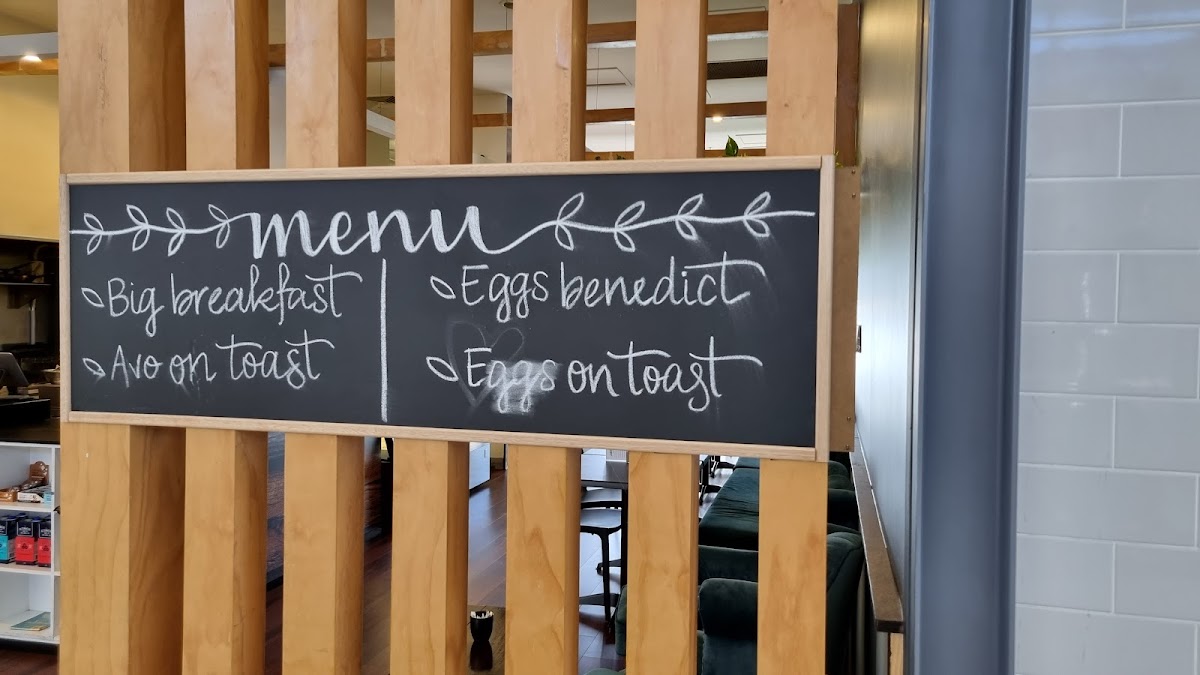 menu
Big breakfast
Avo on toast
Eggs benedict
Eggs on toast